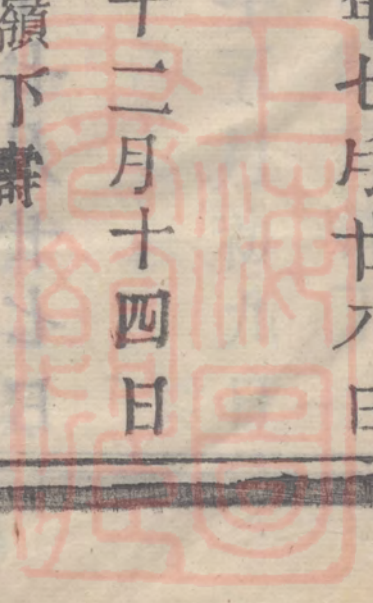 年七月廿八日
十二月十四日
嶺下壽
上海圖書館藏